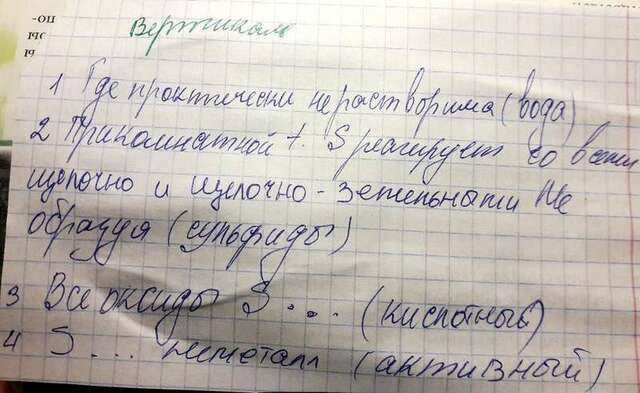 по-
Вертикаль
1 Где практически нерастворима (вода)
2 При комнатной t. S реагирует со всеми
щелочно и щелочно-земельными Me
образуя (сульфиды)
3 Все оксиды S ... (кислотные)
4 S ... неметалл (активный)